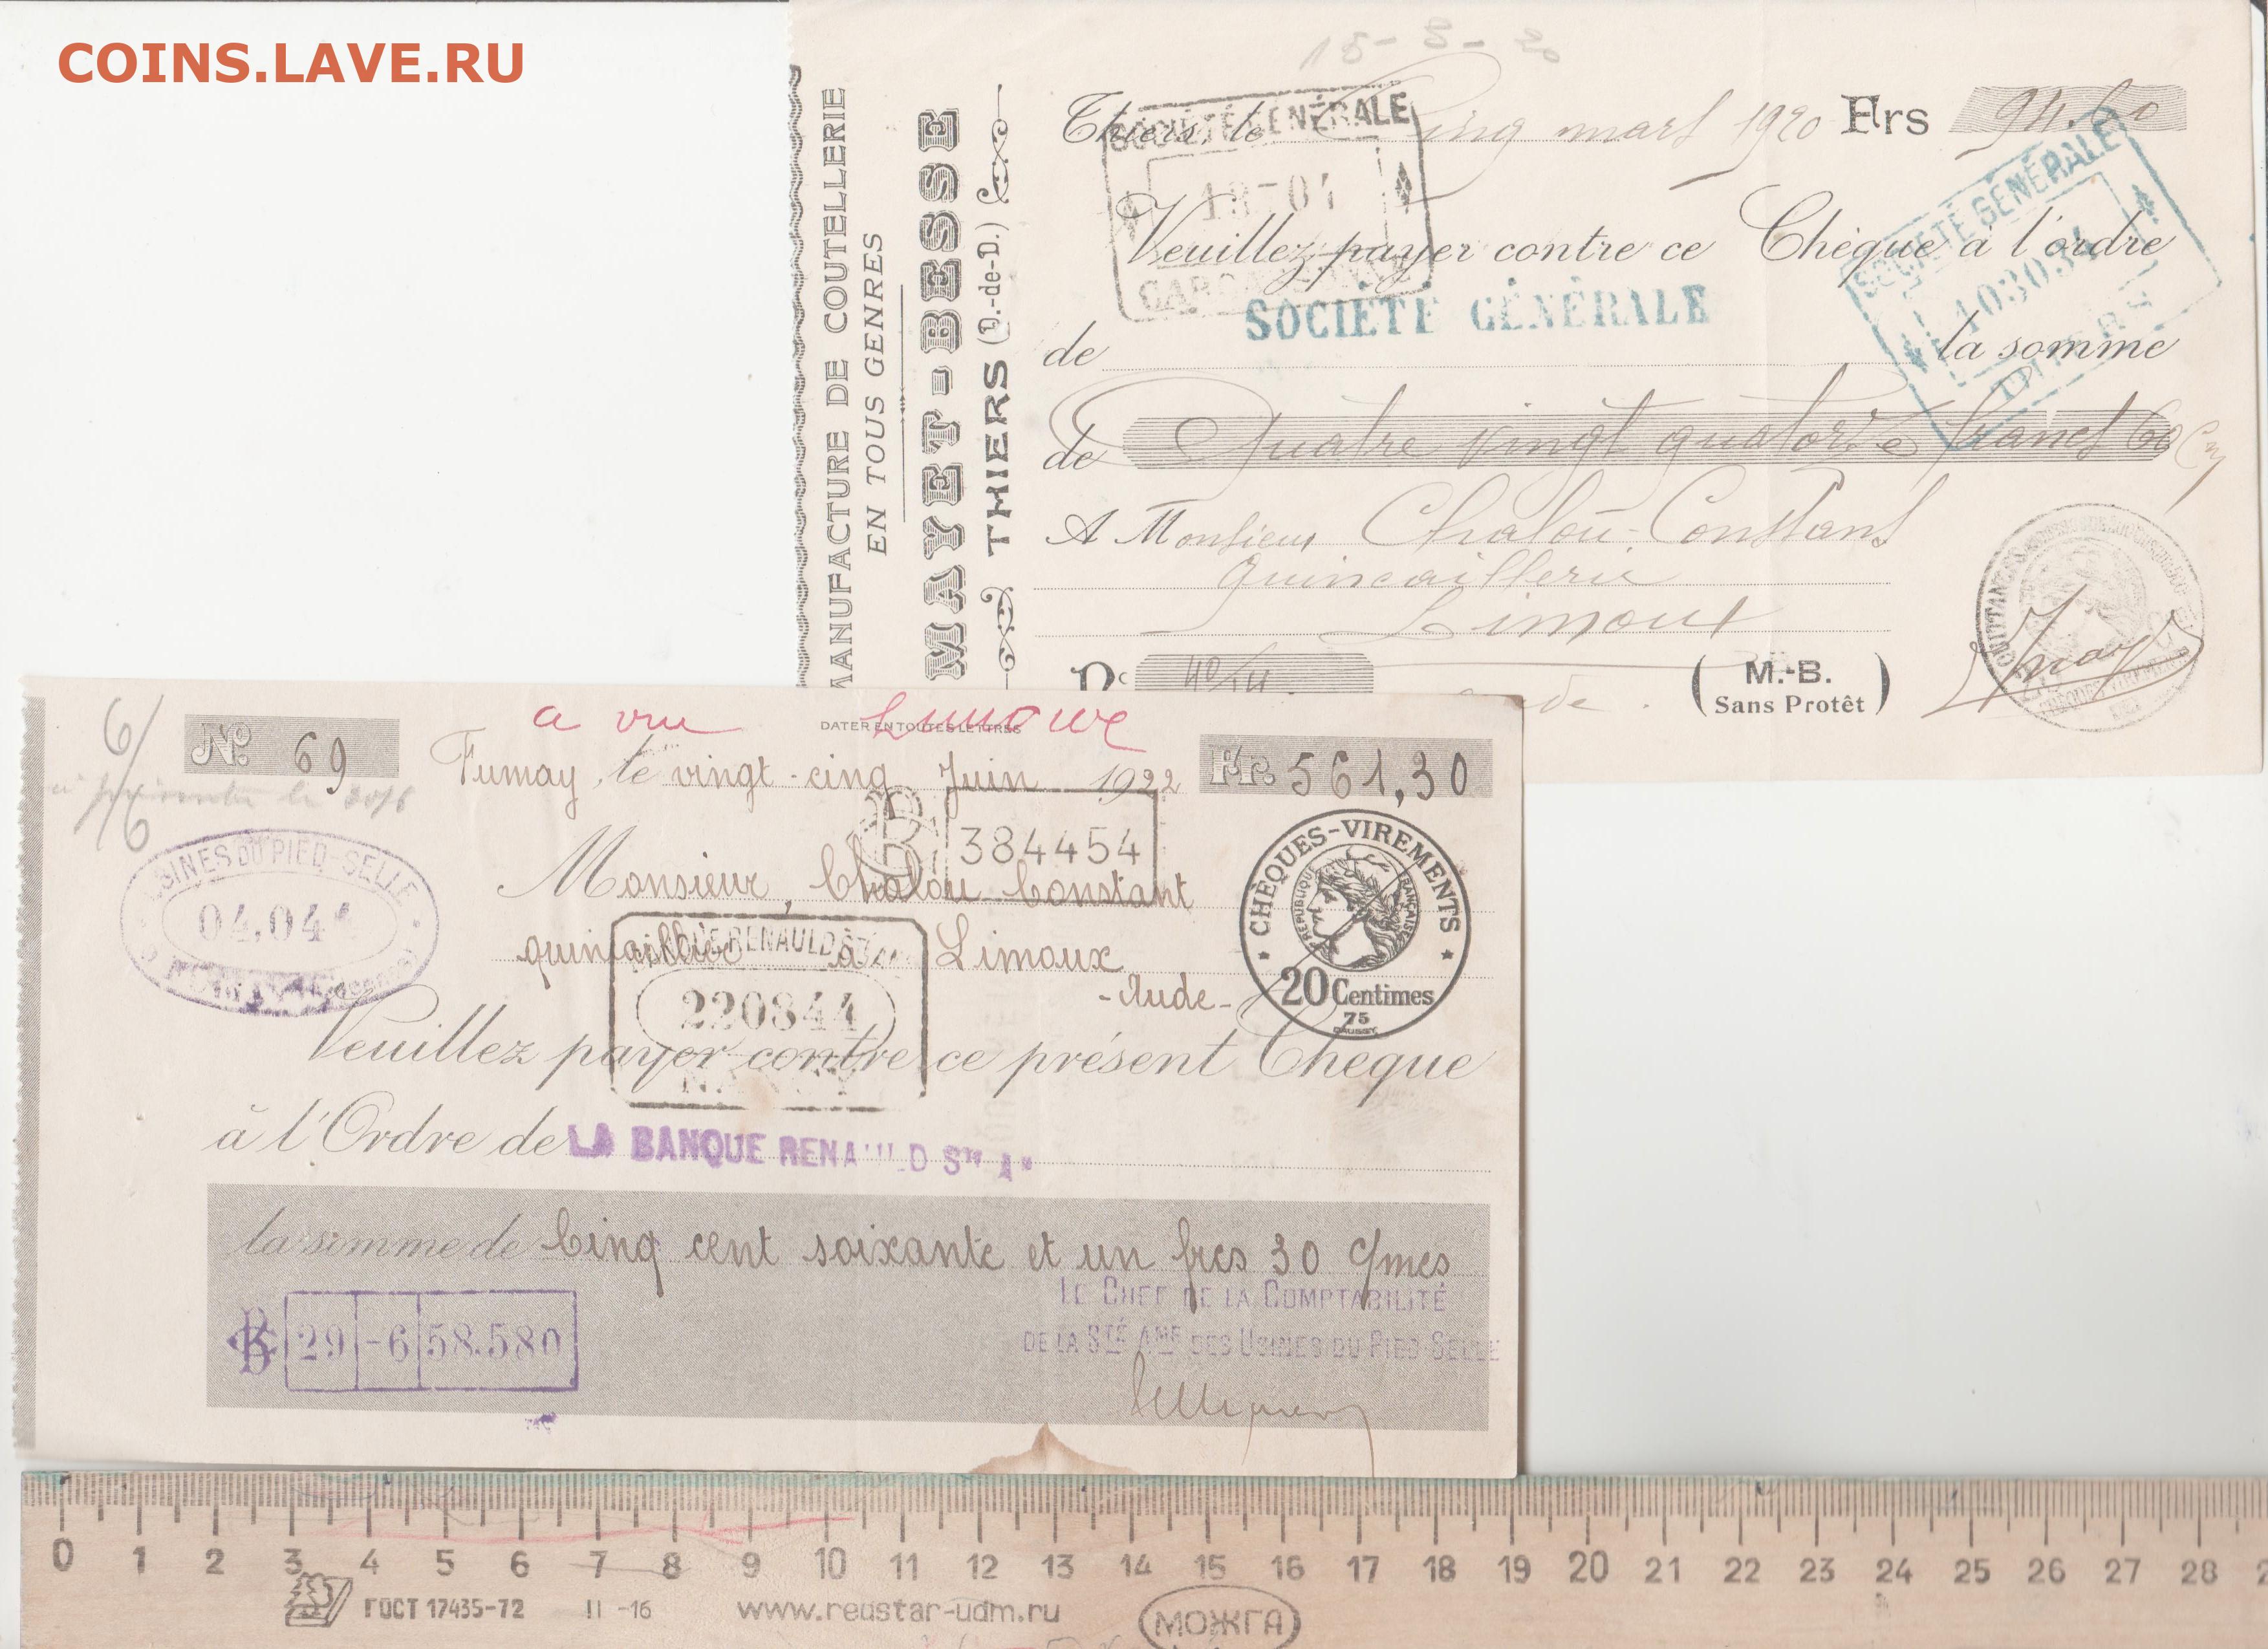 COINS.LAVE.RU
15-3-20
MANUFACTURE DE COUTELLERIE
EN TOUS GENRES
MAYET-BESSE
THIERS (P.-de-D.)
Thiers, le Cinq mars 1920 Frs 94.60
SOCIÉTÉ GÉNÉRALE
13-04
Veuillez payer contre ce Chèque à l'ordre
SOCIÉTÉ GÉNÉRALE
403034
THIERS
de SOCIÉTÉ GÉNÉRALE la somme
de Quatre vingt quatorze francs 60 Cms
A Monsieur Chalou Constant
Quincaillerie
Limoux
Nº
Aude.
(M.-B.
Sans Protêt)
a vue
DATER EN TOUTES LETTRES
6/6
Nº 69
Fumay, le vingt-cinq Juin 1922 Fr. 561,30
384454
USINES DU PIED-SELLE
04.044
Monsieur, Chalou Constant
quincaillier à Limoux
-Aude-
BANQUE RENAULD
220844
NANCY
CHÈQUES-VIREMENTS
RÉPUBLIQUE FRANÇAISE
20 Centimes
75
Veuillez payer contre ce présent Chèque
à l'Ordre de LA BANQUE RENAULD Sté Ae
la somme de Cinq cent soixante et un frcs 30 c/mes
LE CHEF DE LA COMPTABILITÉ
DE LA STÉ AME DES USINES DU PIED-SELLE
29 -6 58.580
0 1 2 3 4 5 6 7 8 9 10 11 12 13 14 15 16 17 18 19 20 21 22 23 24 25 26 27 28
ГОСТ 17435-72 II-16 www.redstar-udm.ru МОЖГА